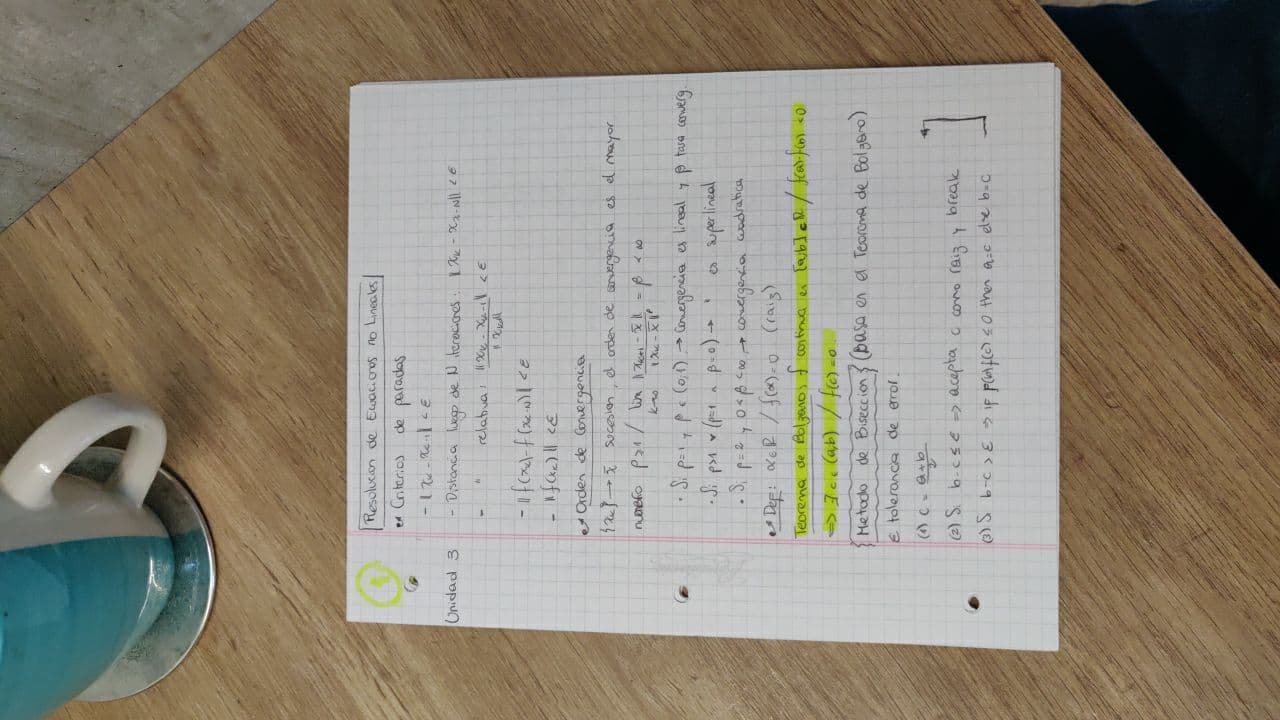 1
Resolucion de Ecuaciones no Lineales
Criterios de paradas
- ‖x_k - x_{k-1}‖ < ε
Unidad 3
- Distancia luego de N iteraciones: ‖x_k - x_{k-N}‖ < ε
- " relativa: ‖x_k - x_{k-1}‖ / ‖x_k‖ < ε
- ‖f(x_k) - f(x_{k-N})‖ < ε
- ‖f(x_k)‖ < ε
Orden de Convergencia
{x_k} → x̄ sucesion, el orden de convergencia es el mayor
numero p ≥ 1 / lim k→∞ ‖x_{k+1} - x̄‖ / ‖x_k - x̄‖^p = β < ∞
• Si p=1 y β ∈ (0,1) → Convergencia es lineal y β tasa converg.
• Si p>1 ∨ (p=1 ∧ β=0) → " es superlineal
• Si p=2 y 0<β<∞ → convergencia cuadratica
Def: α∈ℝ / f(α)=0 (raiz)
Teorema de Bolzano: f continua en [a,b] ⊂ ℝ / f(a)·f(b) <0
⇒ ∃ c ∈ (a,b) / f(c)=0
Metodo de Biseccion (basa en el Teorema de Bolzano)
ε tolerancia de error.
(1) c = a+b / 2
(2) Si b-c ≤ ε ⇒ acepta c como raiz y break
(3) Si b-c > ε ⇒ if f(b)f(c) ≤ 0 then a=c else b=c